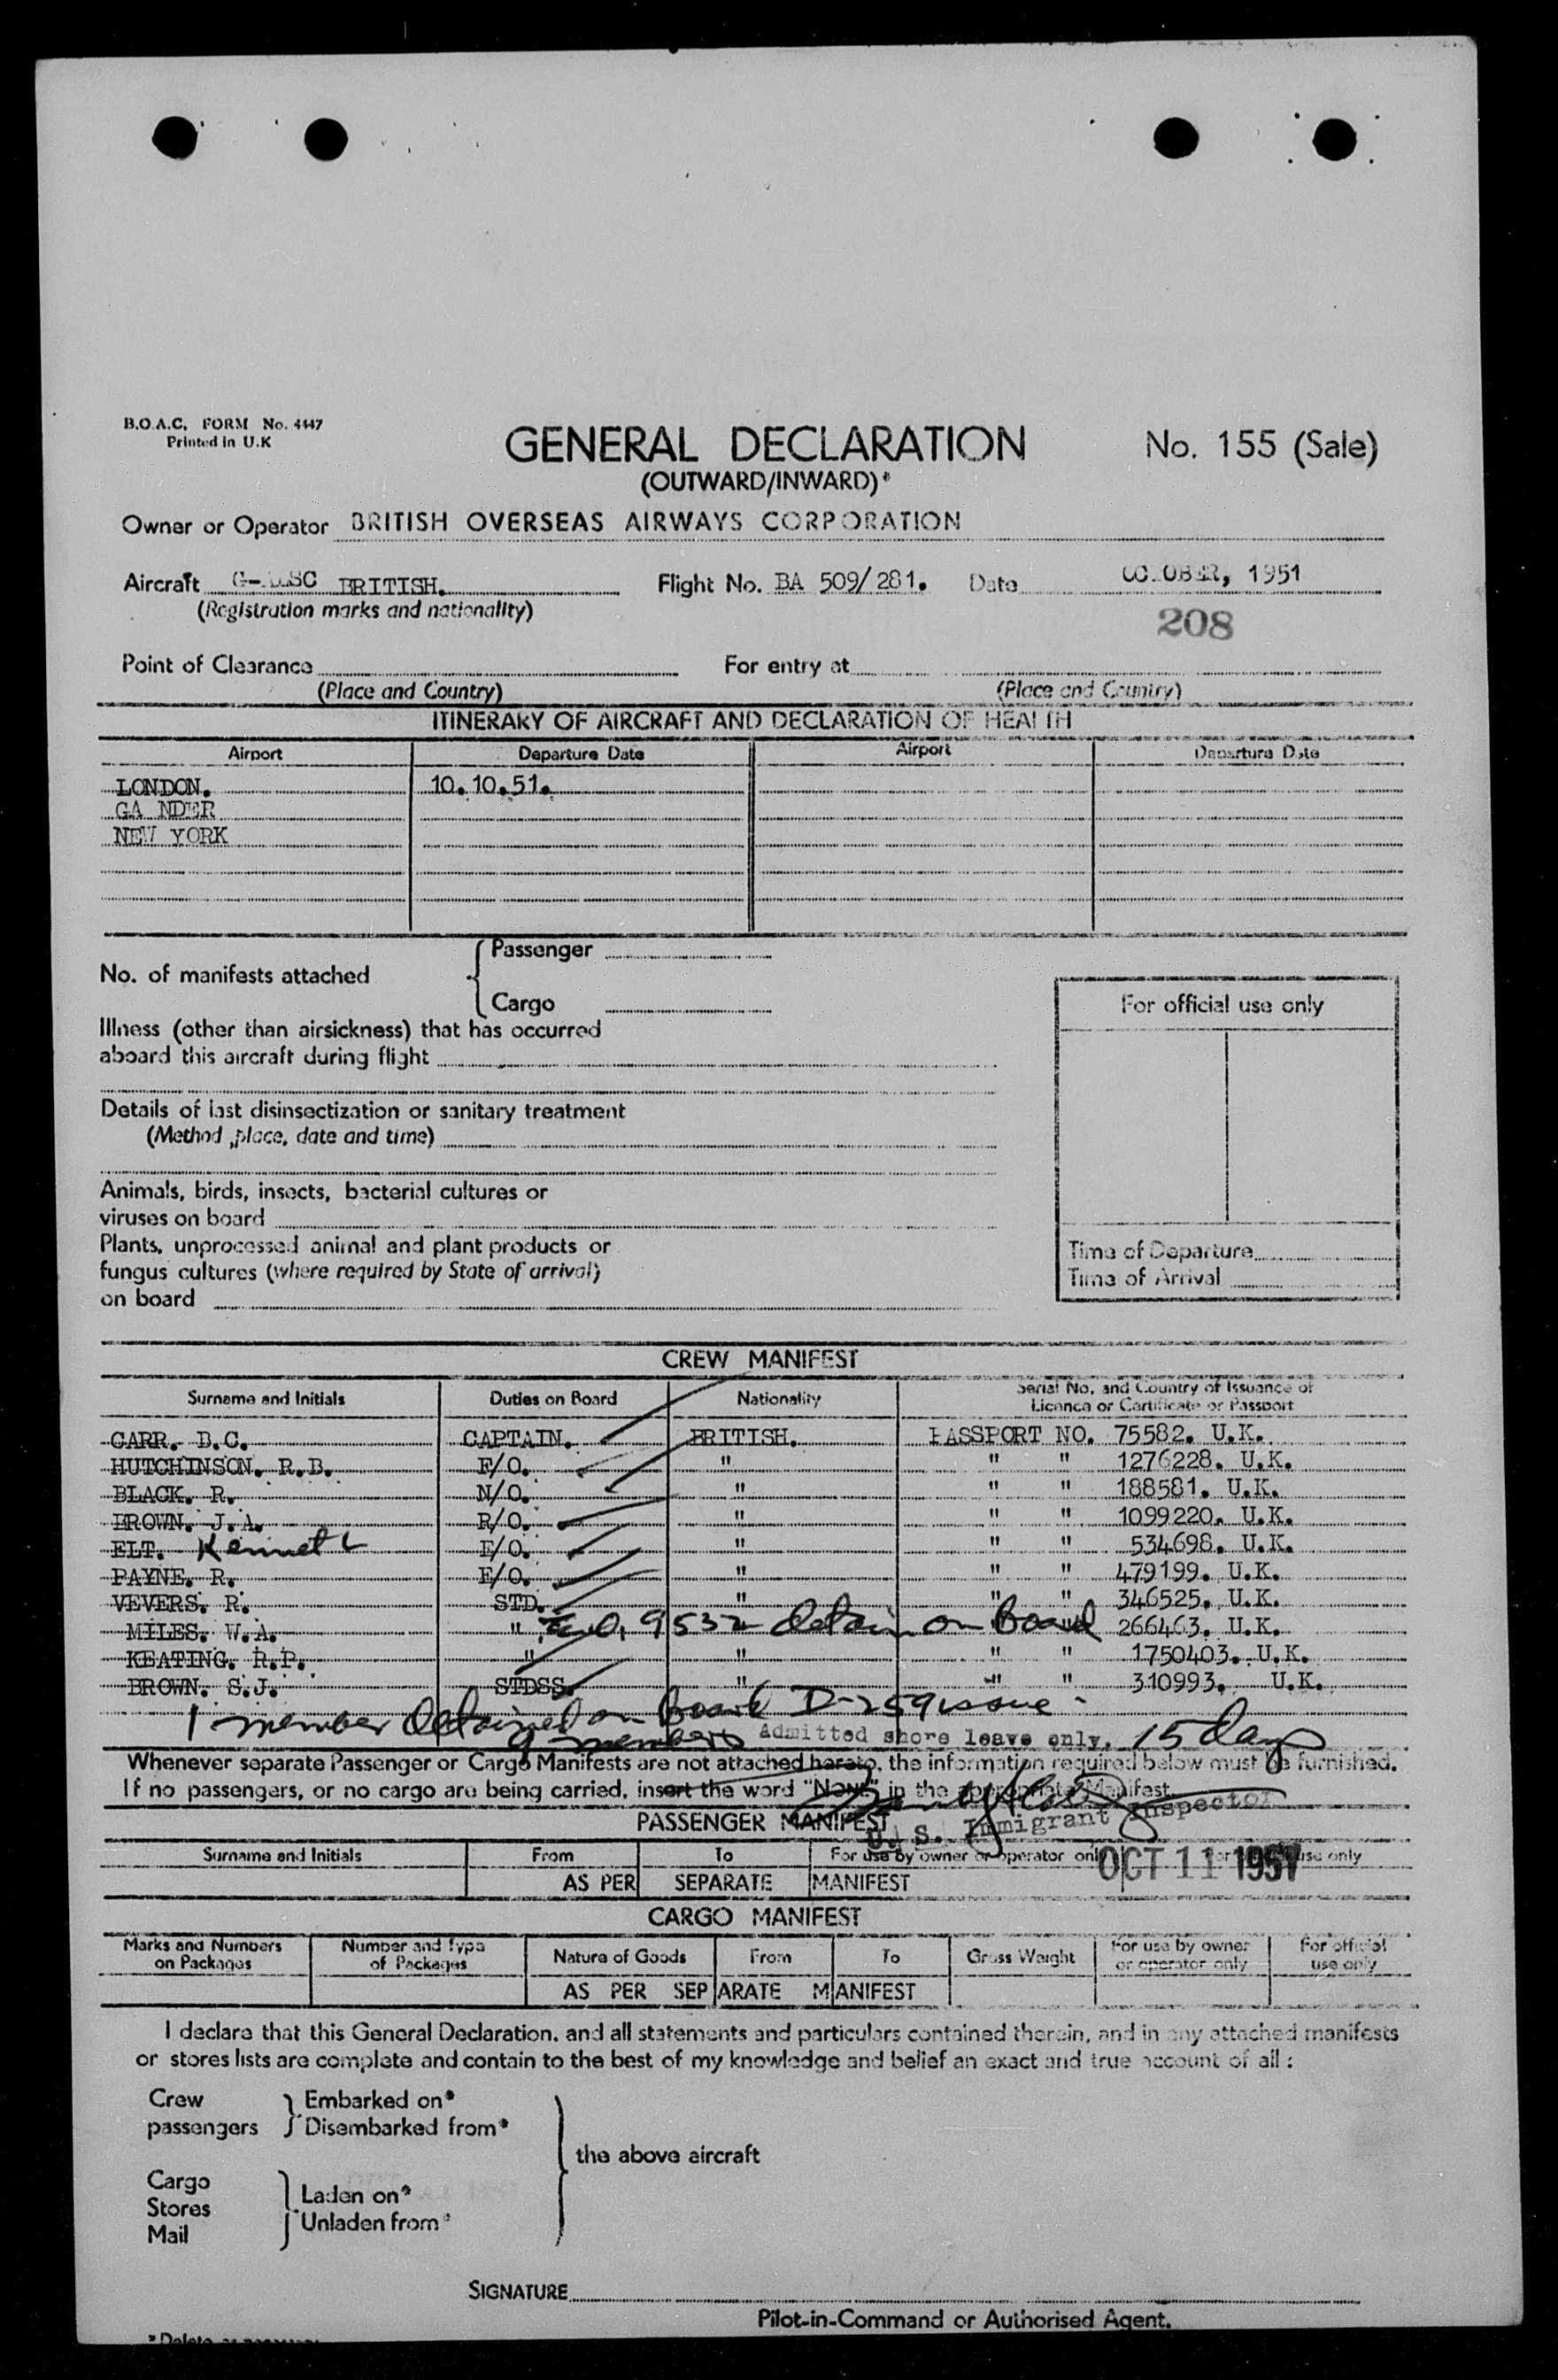 B.O.A.C. FORM No. 4447
Printed in U.K
GENERAL DECLARATION
No. 155 (Sale)
(OUTWARD/INWARD)*
Owner or Operator BRITISH OVERSEAS AIRWAYS CORPORATION
Aircraft BRITISH. Flight No. BA 509/281. Date 1951
(Registration marks and nationality)
208
Point of Clearance For entry at
(Place and Country) (Place and Country)
ITINERARY OF AIRCRAFT AND DECLARATION OF HEALTH
Airport Departure Date Airport Departure Date
LONDON. 10.10.51.
GA NDER
NEW YORK
Passenger
No. of manifests attached
Cargo
For official use only
Illness (other than airsickness) that has occurred
aboard this aircraft during flight
Details of last disinsectization or sanitary treatment
(Method ,place, date and time)
Animals, birds, insects, bacterial cultures or
viruses on board
Plants, unprocessed animal and plant products or
fungus cultures (where required by State of arrival)
on board
Time of Departure
Time of Arrival
CREW MANIFEST
Surname and Initials Duties on Board Nationality Serial No. and Country of Issuance of
Licence or Certificate or Passport
CARR. D.C. CAPTAIN. BRITISH. PASSPORT NO. 75582. U.K.
HUTCHINSON. R.B. F/O. " " " 1276228. U.K.
BLACK. R. N/O. " " " 188581. U.K.
BROWN. J.A. R/O. " " " 1099220. U.K.
ELT. Kenneth E/O. " " " 534698. U.K.
PAYNE. R. E/O. " " " 479199. U.K.
VEVERS. R. STD. " " " 346525. U.K.
MILES. W.A. " 9532 detain on board 266463. U.K.
KEATING. R.P. " " " " 1750403. U.K.
BROWN. S.J. STDSS. " " " 310993. U.K.
1 member detained on board I-259 issue -
9 members Admitted shore leave only. 15 days
Whenever separate Passenger or Cargo Manifests are not attached hereto, the information required below must be furnished.
If no passengers, or no cargo are being carried, insert the word "None" in the appropriate Manifest.
U. S. Immigrant Inspector
PASSENGER MANIFEST
Surname and Initials From To For use by owner or operator only use only
OCT 11 1951
AS PER SEPARATE MANIFEST
CARGO MANIFEST
Marks and Numbers on Packages Number and Type of Packages Nature of Goods From To Gross Weight For use by owner or operator only For official use only
AS PER SEPARATE MANIFEST
I declare that this General Declaration, and all statements and particulars contained therein, and in any attached manifests
or stores lists are complete and contain to the best of my knowledge and belief an exact and true account of all :
Crew Embarked on*
passengers Disembarked from*
the above aircraft
Cargo
Stores Laden on*
Mail Unladen from*
SIGNATURE
Pilot-in-Command or Authorised Agent.